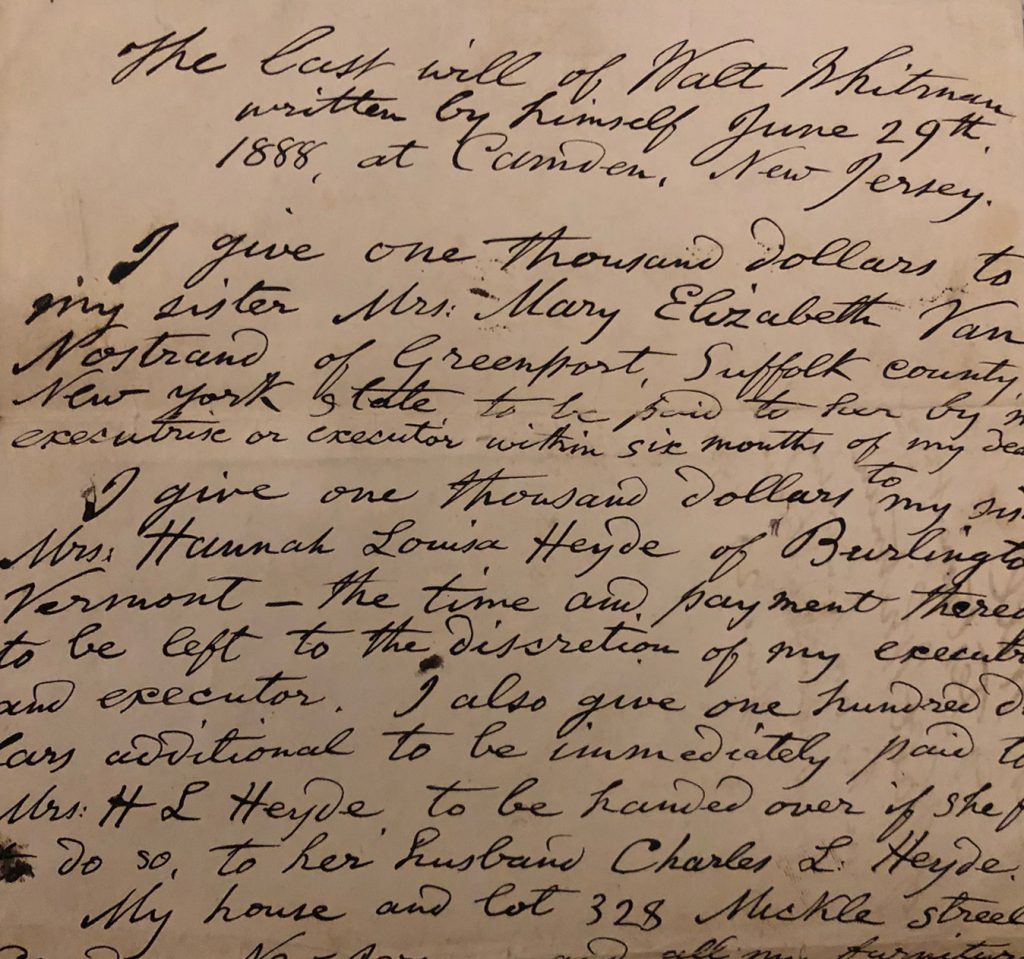 The last will of Walt Whitman
written by himself June 29th.
1888, at Camden, New Jersey.
I give one thousand dollars to
my sister Mrs: Mary Elizabeth Van
Nostrand of Greenport, Suffolk county,
New York state, to be paid to her by
executrix or executor within six months of my
I give one thousand dollars to my
Mrs: Hannah Louisa Heyde of
Vermont – the time and payment
to be left to the discretion of my
and executor. I also give one hundred
lars additional to be immediately paid
Mrs: H L Heyde, to be handed over if she
to do so, to her husband Charles L. Heyde.
My house and lot 328 Mickle street
and all my